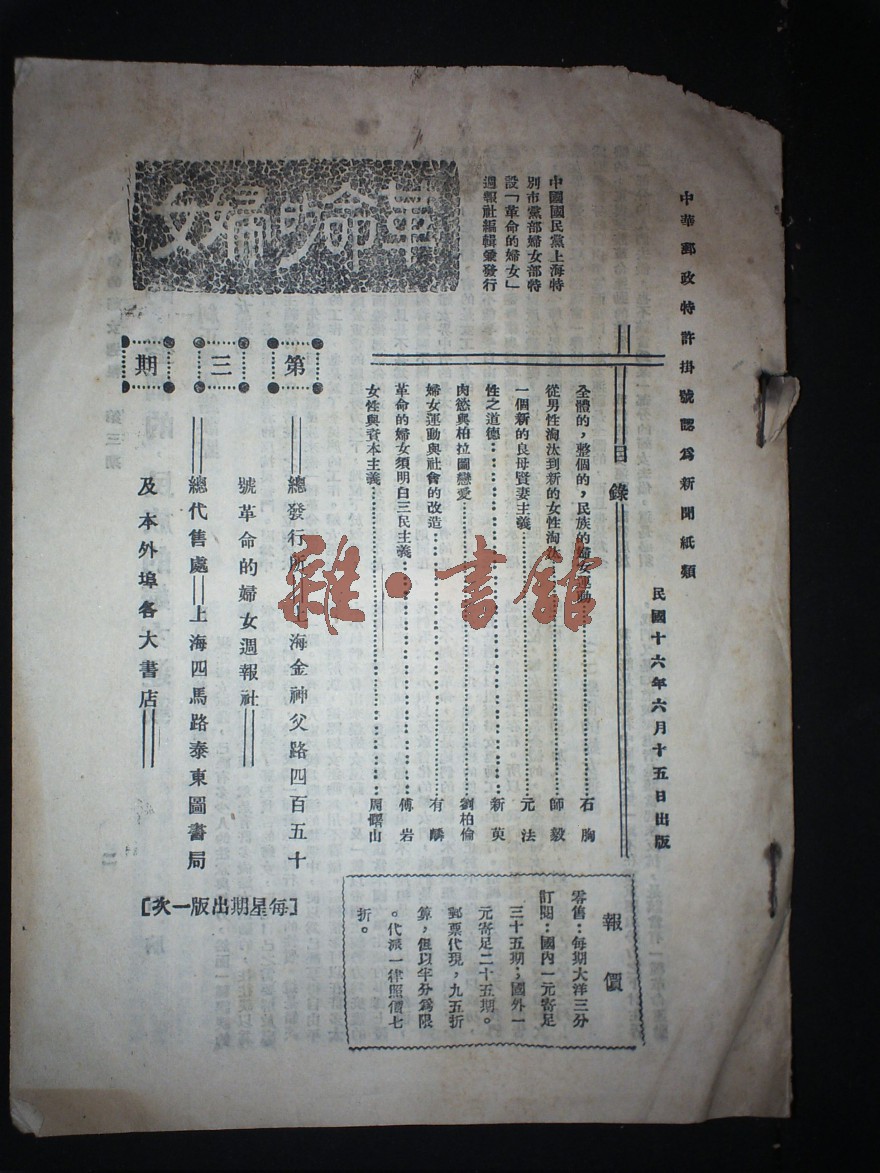 中華郵政特許掛號認為新聞紙類
民國十六年六月十五日出版
中國國民黨上海特
別市黨部婦女部特
設「革命的婦女」
週報社編輯兼發行
革命的婦女
第三期
目錄
全體的，整個的，民族的婦女運動…………石胸
從男性淘汰到新的女性淘汰…………師毅
一個新的良母賢妻主義…………元法
性之道德…………新英
肉慾與柏拉圖戀愛…………劉柏倫
婦女運動與社會的改造…………有麟
革命的婦女須明白三民主義…………傅岩
女性與資本主義…………周曙山
總發行所＝上海金神父路四百五十
號革命的婦女週報社
總代售處＝上海四馬路泰東圖書局
及本外埠各大書店
[每星期出版一次]
報價
零售：每期大洋三分
訂閱：國內一元寄足
三十五期；國外一
元寄足二十五期。
郵票代現，九五折
算，但以半分為限
。代派一律照價七
折。
雜·書館